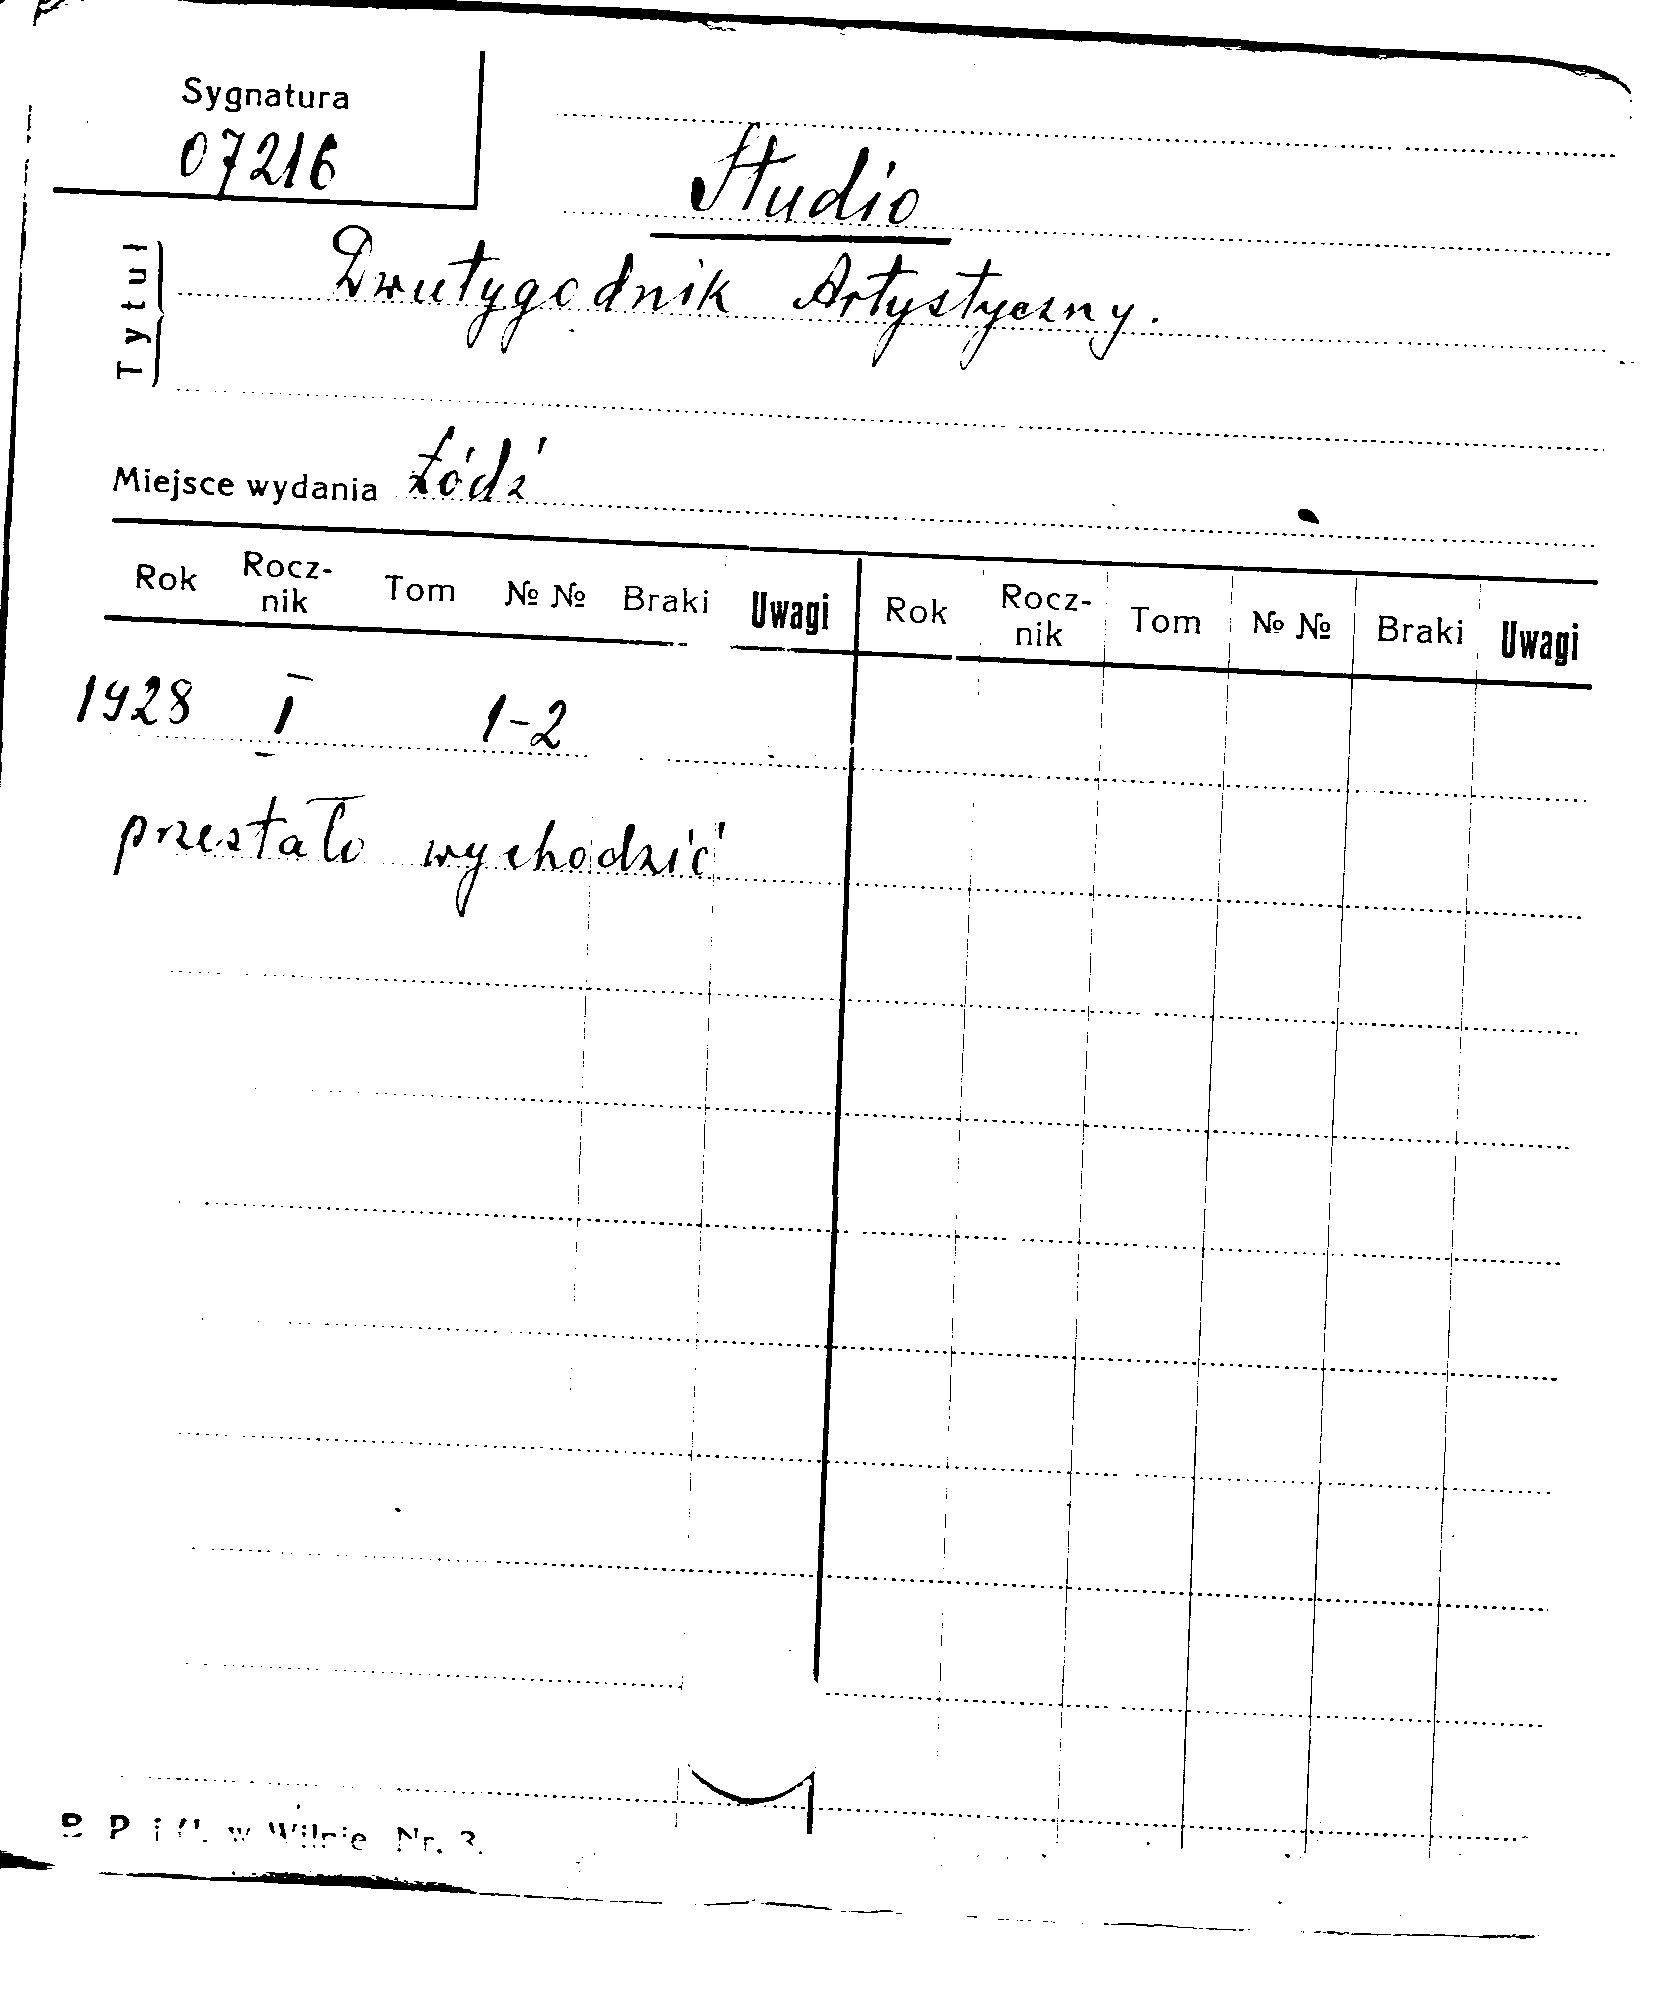 Sygnatura
07216
Studio
Tytuł
Dwutygodnik Artystyczny.
Miejsce wydania Łódź
Rok Rocz-nik Tom № № Braki Uwagi Rok Rocz-nik Tom № № Braki Uwagi
1928 I 1-2
przestało wychodzić
B P i U. w Wilnie Nr. 3.